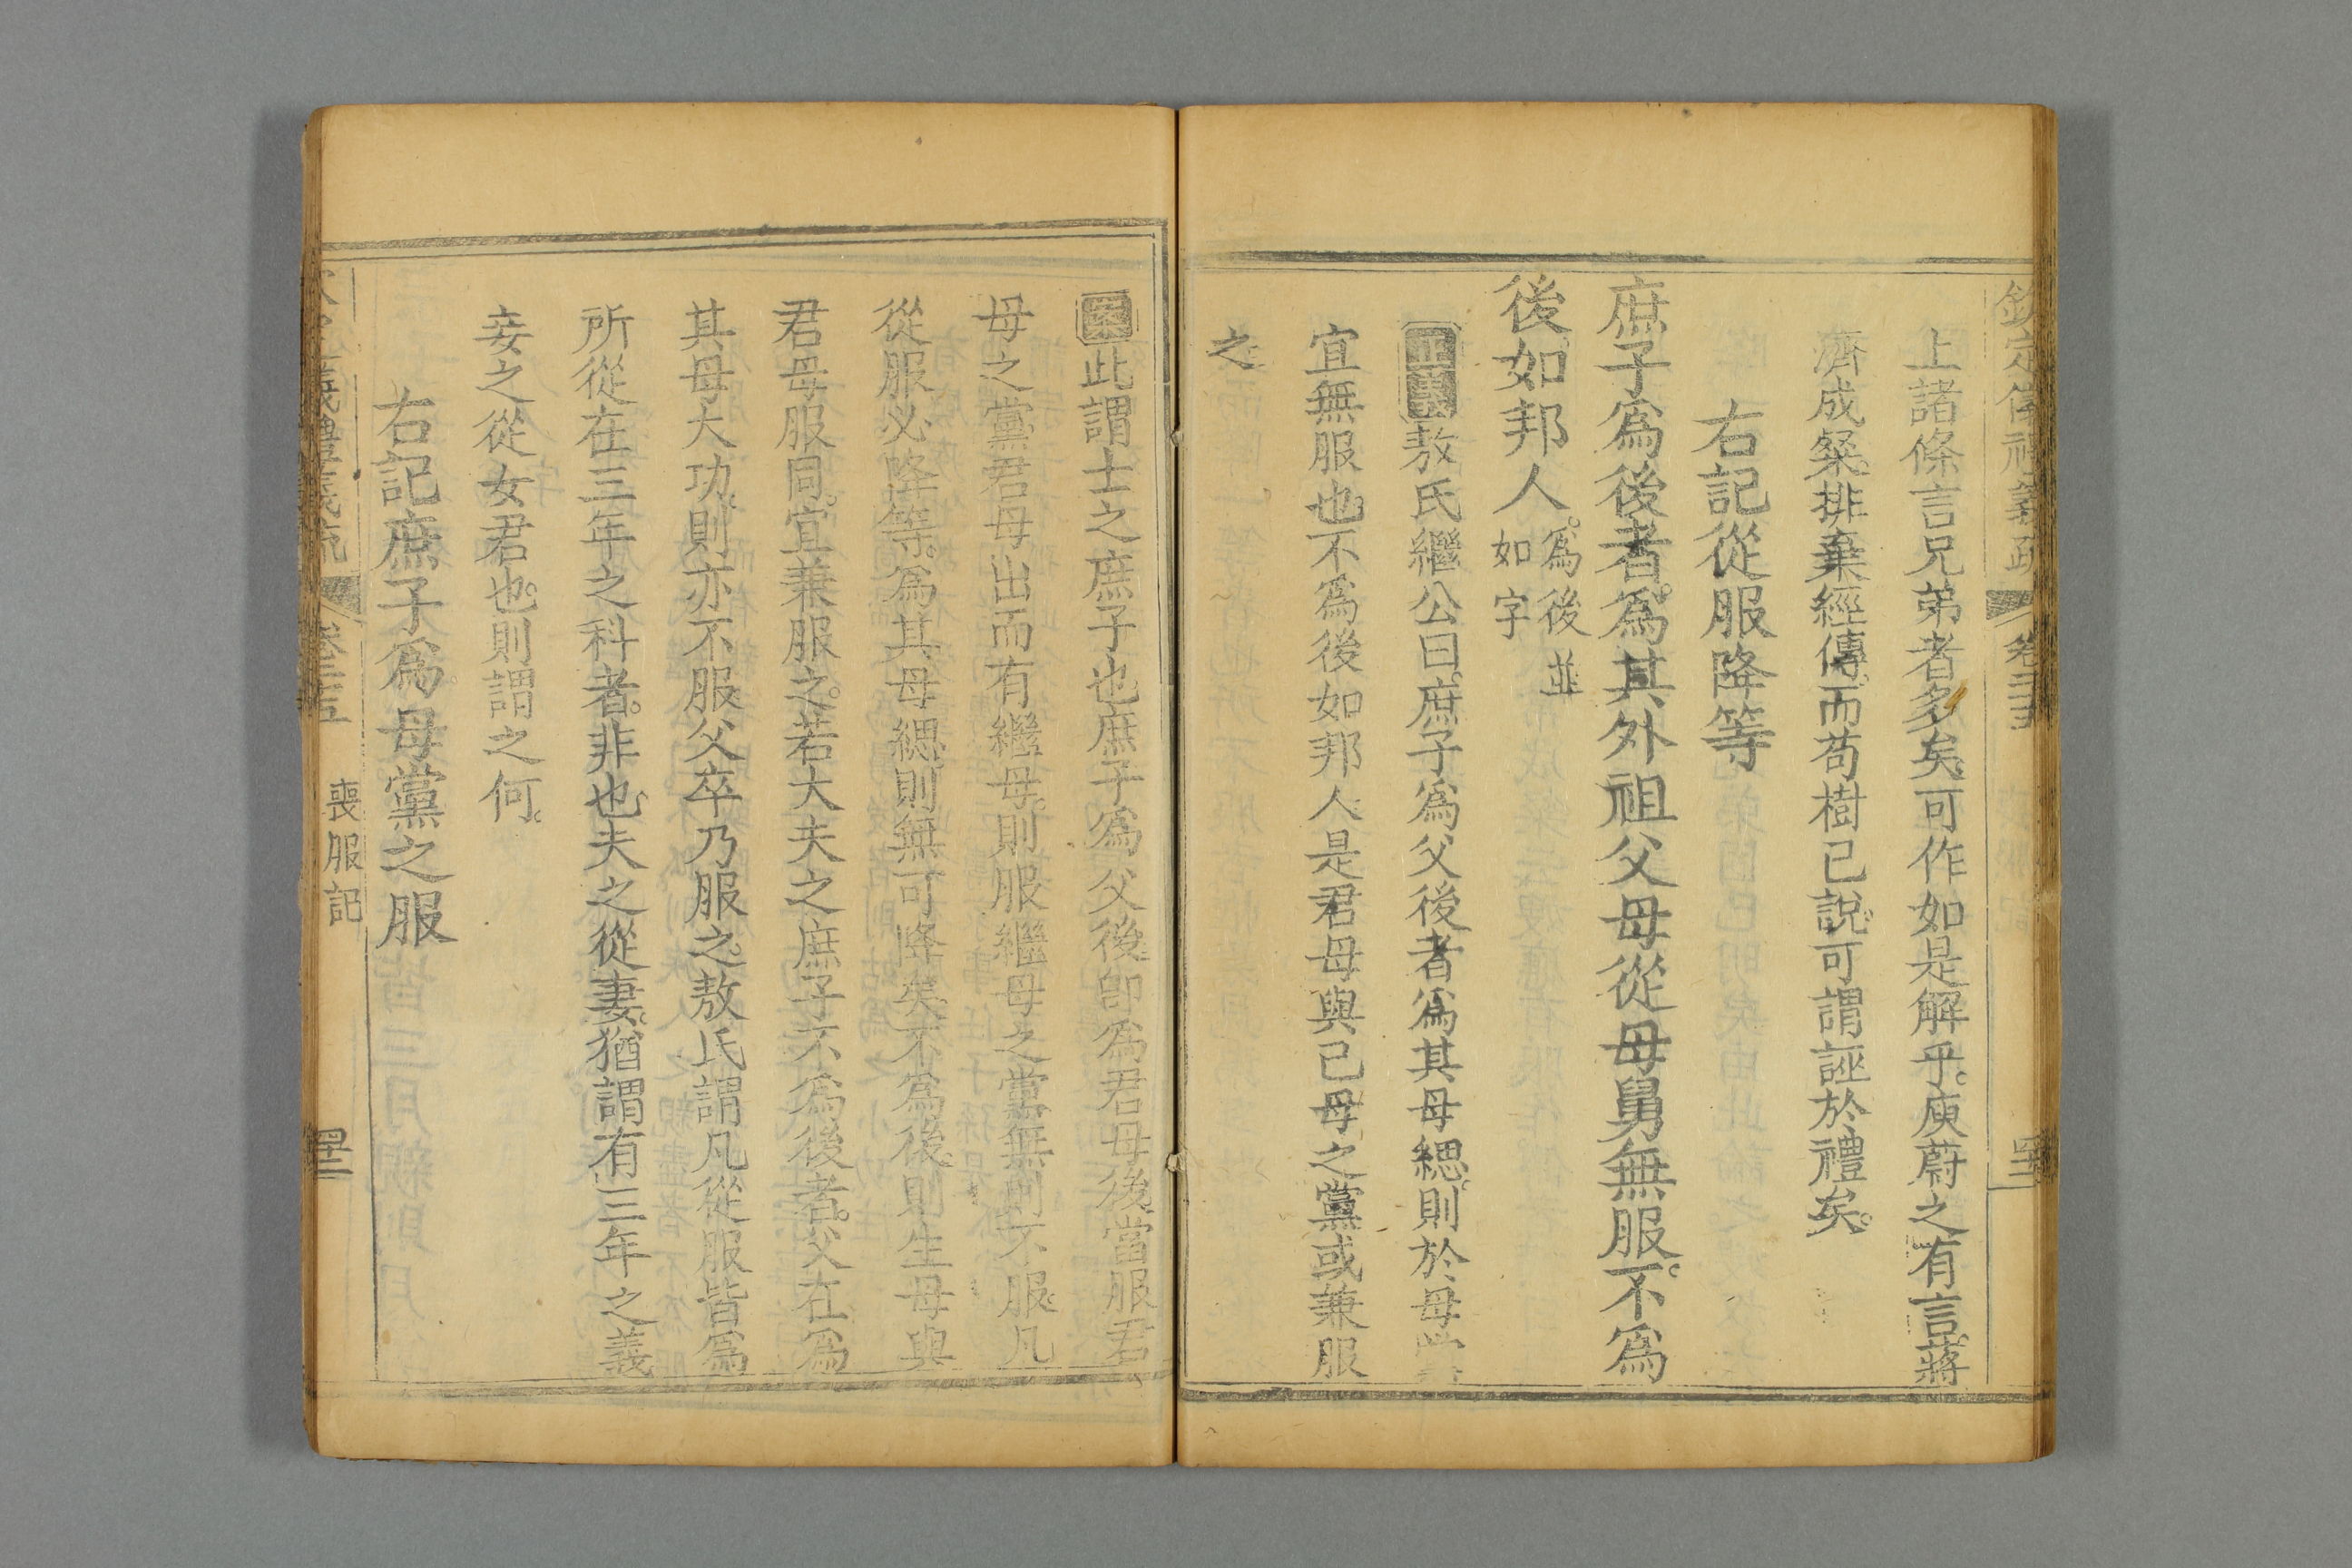 欽定儀禮義疏 卷二十五
上諸條言兄弟者多矣可作如是解乎庾蔚之有言蔣
濟成粲排棄經傳而苟樹己説可謂誣於禮矣
右記從服降等
庶子爲後者爲其外祖父母從母舅無服不爲
後如邦人爲後並
如字
正義敖氏繼公曰庶子爲父後者爲其母緦則於母黨
宜無服也不爲後如邦人是君母與己母之黨或兼服
之
案此謂士之庶子也庶子爲父後卽爲君母後當服君
母之黨君母出而有繼母則服繼母之黨無則不服凡
從服必降等爲其母緦則無可降矣不爲後則生母與
君母服同宜兼服之若大夫之庶子不爲後者父在爲
其母大功則亦不服父卒乃服之敖氏謂凡從服皆爲
所從在三年之科者非也夫之從妻猶謂有三年之義
妾之從女君也則謂之何
右記庶子爲母黨之服
儀禮義疏 卷二十五 喪服記 四十二